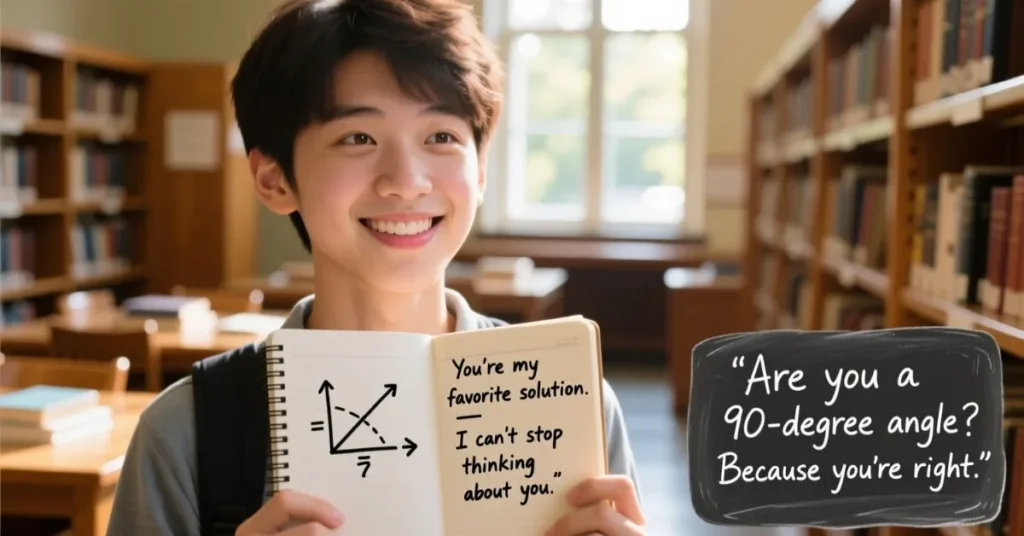 You're my
favorite solution.
I can't stop
thinking
about you."
"Are you a
90-degree angle?
Because you're right."